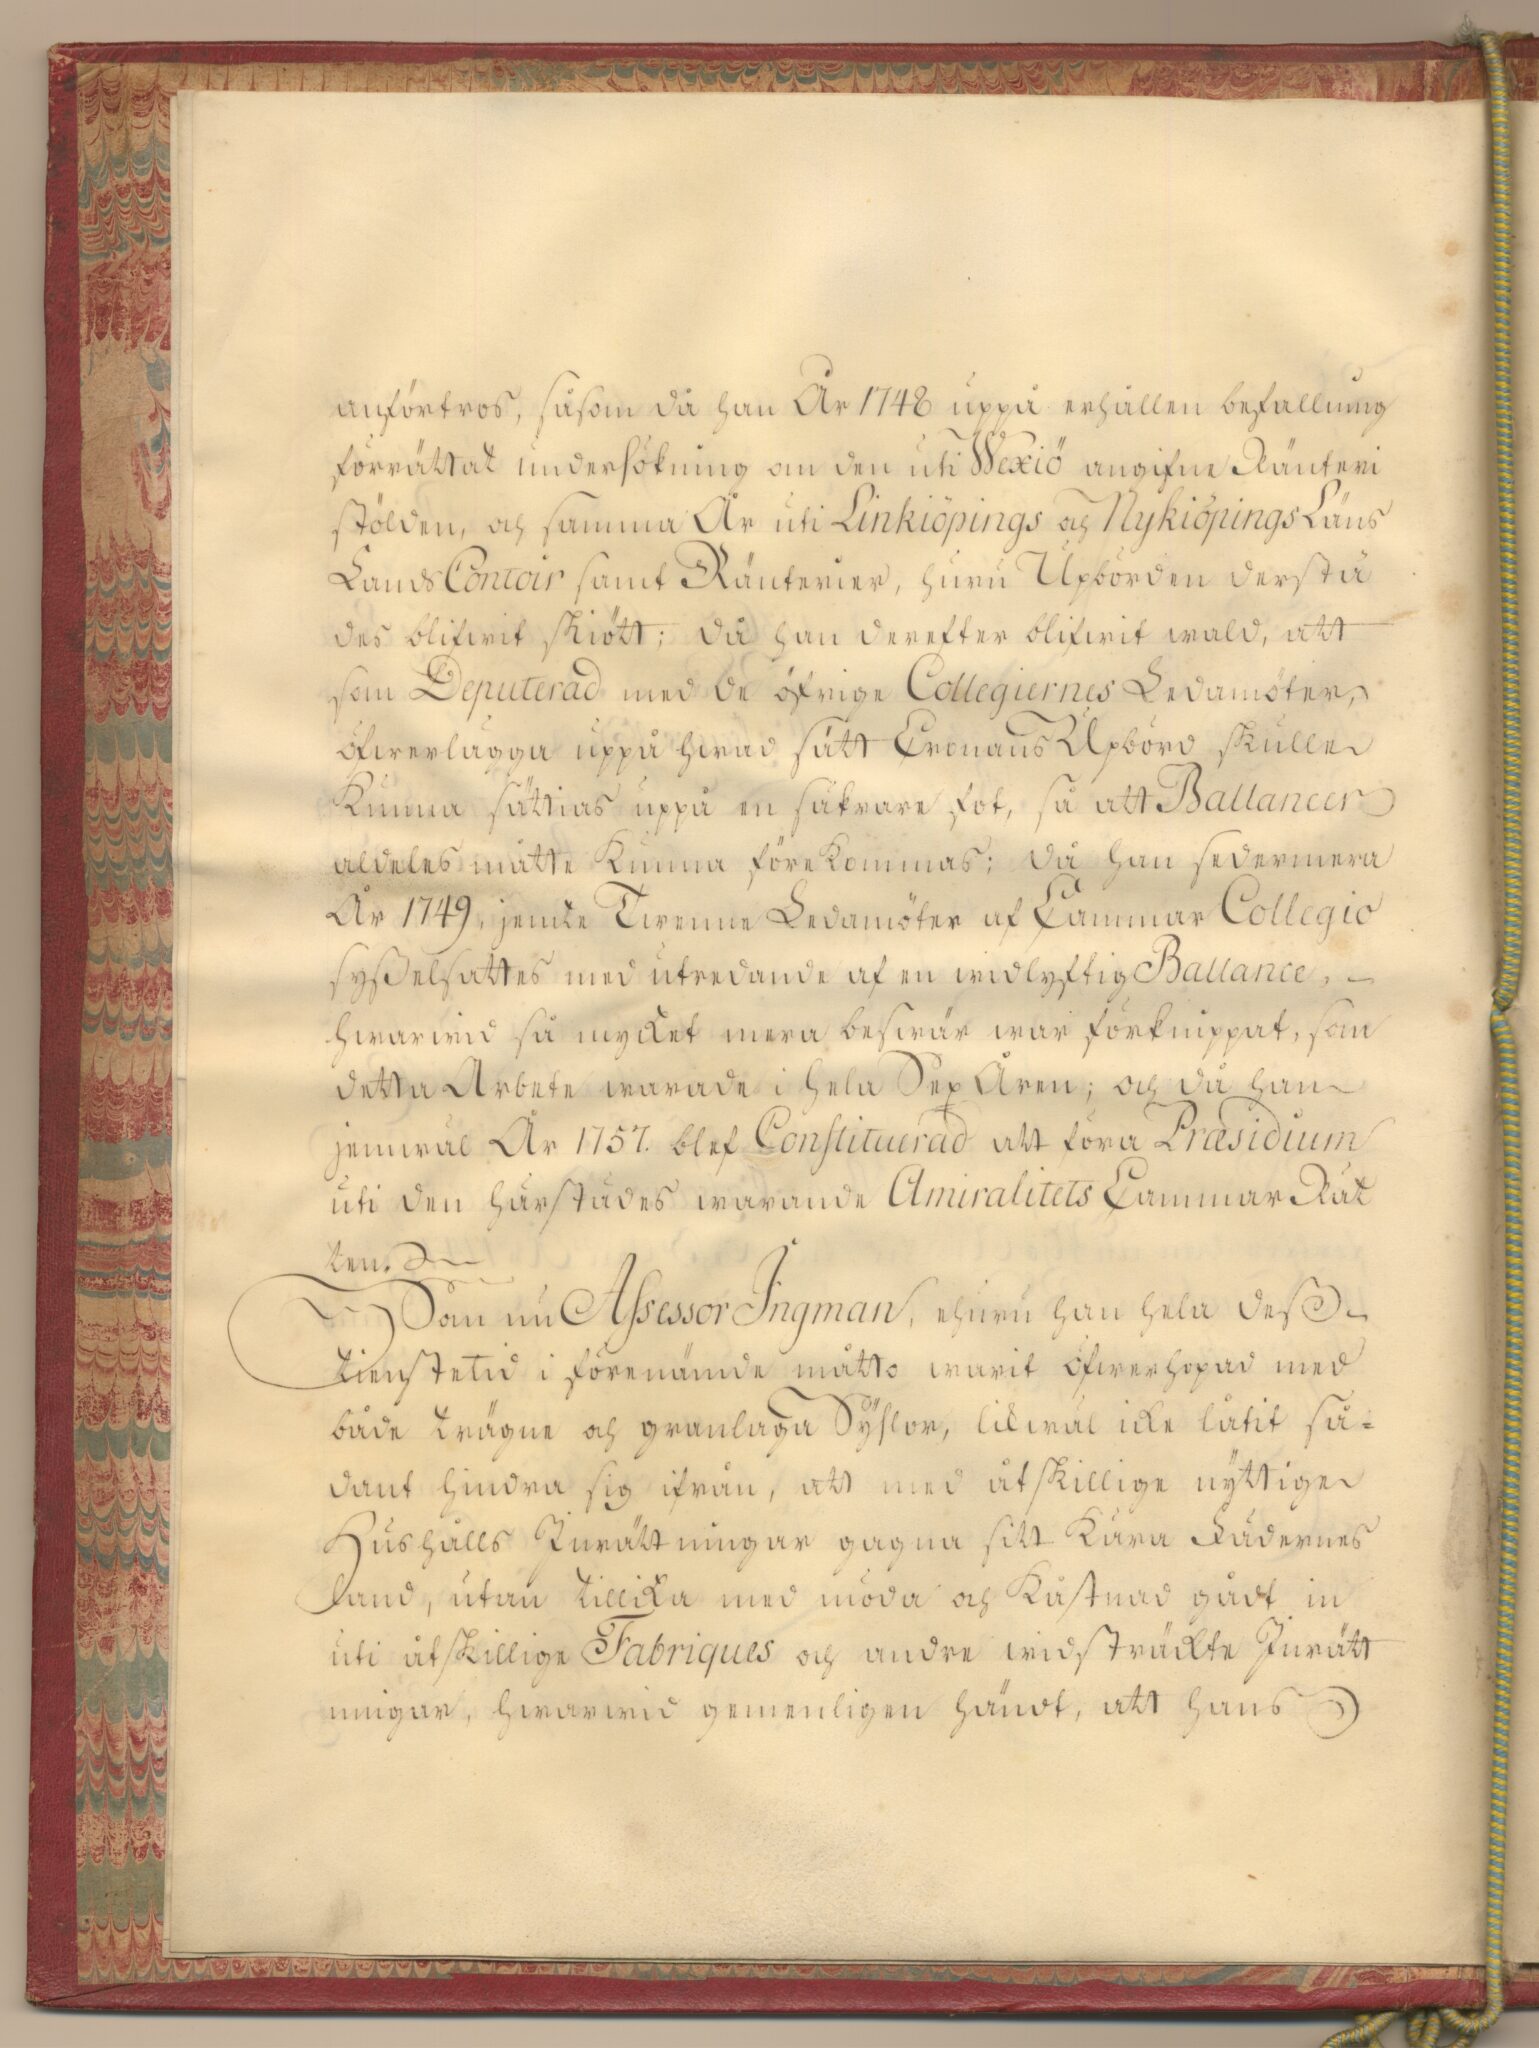 anförtros, såsom då han År 1748 uppå erhållen befallning
förrättat undersökning om den uti Wexiö angifne Ränteri
stölden, och samma År uti Linkiöpings och Nykiöpings Läns
Lands Contoir samt Ränterier, huru Upbörden derstä
des blifwit skiött; då han derefter blifwit wald, att
som Deputerad med de öfrige Collegiernes Ledamöter,
öfwerlägga uppå hwad sätt Cronans Upbörd skulle
kunna sättias uppå en säkrare fot, så att Ballancer
aldeles måtte kunna förekommas; då han sedermera
År 1749, jemte Twenne Ledamöter af Cammar Collegio
sysselsattes med utredande af en widlyftig Ballance,
hwarwid så mycket mera beswär war förknippat, som
detta Arbete warade i hela Sex Åren; och då han
jemwäl År 1757. blef Constituerad att föra Præsidium
uti den härstädes warande Amiralitets Cammar Rät
ten.
Som nu Assessor Ingman, ehuru han hela dess
tienstetid i förenämde måtto warit öfwerhopad med
både trägne och granlaga Sÿslor, likwäl icke låtit så-
dant hindra sig ifrån, att med åtskillige nyttige
Hushålls Inrättningar gagna sitt Kära Fädernes
land, utan tillika med möda och Kåstnad gådt in
uti åtskillige Fabriques och andre widsträckte Inrätt
ningar, hwarwid gemenligen händt, att hans